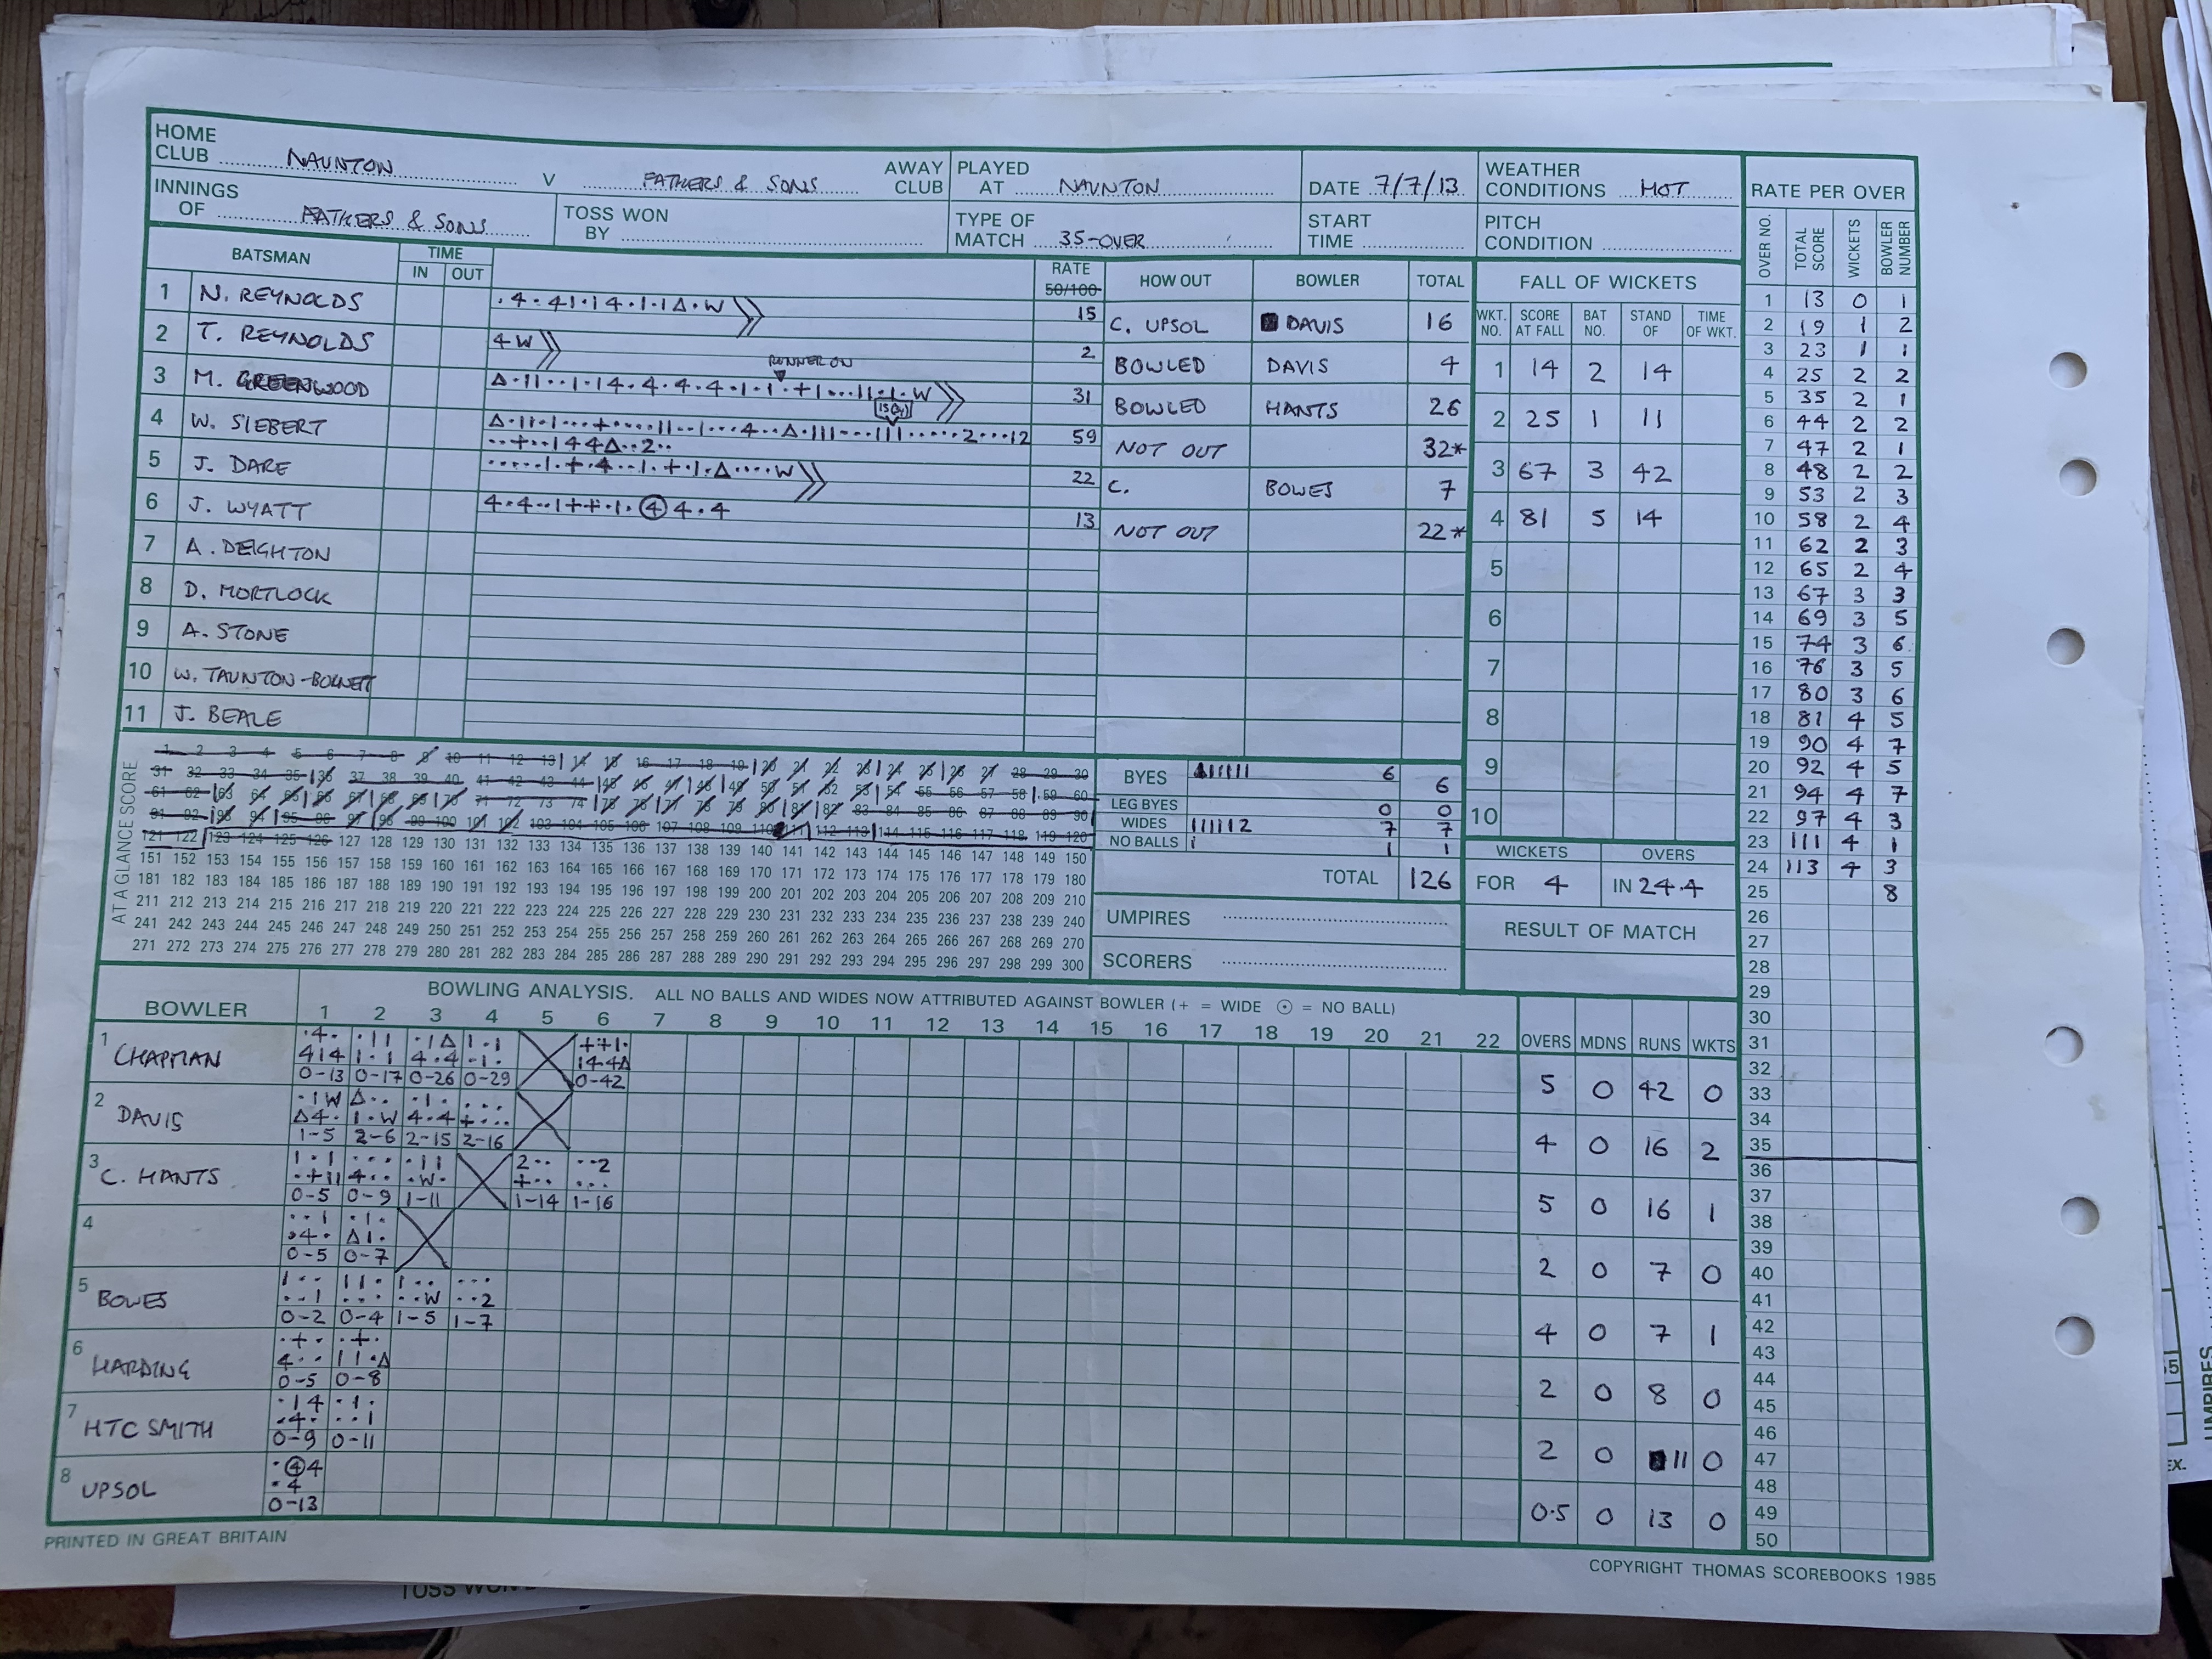 HOME CLUB NAUNTON V FATHERS & SONS AWAY CLUB PLAYED AT NAUNTON DATE 7/7/13 WEATHER CONDITIONS HOT
INNINGS OF FATHERS & SONS TOSS WON BY TYPE OF MATCH 35-OVER START TIME PITCH CONDITION
BATSMAN TIME IN OUT RATE 50/100 HOW OUT BOWLER TOTAL
1 N. REYNOLDS .4.41.14.1.1Δ.W 15 C. UPSOL DAVIS 16
2 T. REYNOLDS 4W 2 BOWLED DAVIS 4
RUNNER ON
3 M. GREENWOOD 31 BOWLED HANTS 26
4 W. SIEBERT 59 NOT OUT 32*
5 J. DARE 22 C. BOWES 7
6 J. WYATT 4.4..1++.1.④4.4 13 NOT OUT 22*
7 A. DEIGHTON
8 D. MORTLOCK
9 A. STONE
10 W. TAUNTON-
11 J. BEALE
FALL OF WICKETS
WKT. NO. SCORE AT FALL BAT NO. STAND OF TIME OF WKT.
1 14 2 14
2 25 1 11
3 67 3 42
4 81 5 14
5
6
7
8
9
10
AT A GLANCE SCORE
1 2 3 4 5 6 7 8 9 10 11 12 13 14 15 16 17 18 19 20 21 22 23 24 25 26 27 28 29 30
31 32 33 34 35 36 37 38 39 40 41 42 43 44 45 46 47 48 49 50 51 52 53 54 55 56 57 58 59 60
61 62 63 64 65 66 67 68 69 70 71 72 73 74 75 76 77 78 79 80 81 82 83 84 85 86 87 88 89 90
91 92 93 94 95 96 97 98 99 100 101 102 103 104 105 106 107 108 109 110 111 112 113 114 115 116 117 118 119 120
121 122 123 124 125 126 127 128 129 130 131 132 133 134 135 136 137 138 139 140 141 142 143 144 145 146 147 148 149 150
151 152 153 154 155 156 157 158 159 160 161 162 163 164 165 166 167 168 169 170 171 172 173 174 175 176 177 178 179 180
181 182 183 184 185 186 187 188 189 190 191 192 193 194 195 196 197 198 199 200 201 202 203 204 205 206 207 208 209 210
211 212 213 214 215 216 217 218 219 220 221 222 223 224 225 226 227 228 229 230 231 232 233 234 235 236 237 238 239 240
241 242 243 244 245 246 247 248 249 250 251 252 253 254 255 256 257 258 259 260 261 262 263 264 265 266 267 268 269 270
271 272 273 274 275 276 277 278 279 280 281 282 283 284 285 286 287 288 289 290 291 292 293 294 295 296 297 298 299 300
BYES 6 6
LEG BYES 0 0
WIDES 1111112 7 7
NO BALLS 1 1 1
TOTAL 126
UMPIRES
SCORERS
WICKETS OVERS
FOR 4 IN 24.4
RESULT OF MATCH
RATE PER OVER
OVER NO. TOTAL SCORE WICKETS BOWLER NUMBER
1 13 0 1
2 19 1 2
3 23 1 1
4 25 2 2
5 35 2 1
6 44 2 2
7 47 2 1
8 48 2 2
9 53 2 3
10 58 2 4
11 62 2 3
12 65 2 4
13 67 3 3
14 69 3 5
15 74 3 6
16 76 3 5
17 80 3 6
18 81 4 5
19 90 4 7
20 92 4 5
21 94 4 7
22 97 4 3
23 111 4 1
24 113 4 3
25 8
26
27
28
29
30
31
32
33
34
35
36
37
38
39
40
41
42
43
44
45
46
47
48
49
50
BOWLING ANALYSIS. ALL NO BALLS AND WIDES NOW ATTRIBUTED AGAINST BOWLER (+ = WIDE ⊙ = NO BALL)
BOWLER 1 2 3 4 5 6 7 8 9 10 11 12 13 14 15 16 17 18 19 20 21 22 OVERS MDNS RUNS WKTS
.4. .11 .1Δ 1.1 ++1.
1 CHAPMAN 414 1.1 4.4 .1. 14.4Δ 5 0 42 0
0-13 0-17 0-26 0-29 0-42
.1W Δ.. .1. ...
2 DAVIS Δ4. 1.W 4.4 +... 4 0 16 2
1-5 2-6 2-15 2-16
1.1 ... .11 2.. ..2
3 C. HANTS .+11 4.. .W. +.. ... 5 0 16 1
0-5 0-9 1-11 1-14 1-16
..1 .1.
4 .4. Δ1. 2 0 7 0
0-5 0-7
1.. 11. 1.. ...
5 BOWES ..1 ... ..W ..2 4 0 7 1
0-2 0-4 1-5 1-7
.+. .+.
6 HARDING 4.. 11.Δ 2 0 8 0
0-5 0-8
.14 .1.
7 HTC SMITH .4. ..1 2 0 11 0
0-9 0-11
.④4
8 UPSOL .4 0.5 0 13 0
0-13
PRINTED IN GREAT BRITAIN
COPYRIGHT THOMAS SCOREBOOKS 1985